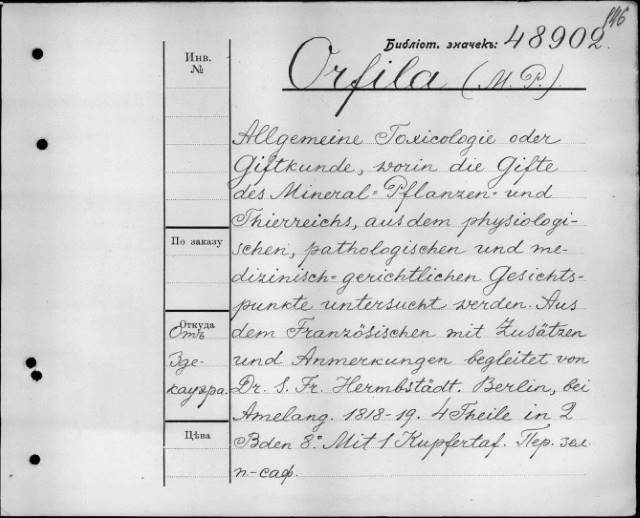 946
Библіот. значекъ: 48902.
Инв. №
Orfila (M. P.)
Allgemeine Toxicologie oder
Giftkunde, worin die Gifte
des Mineral= Pflanzen= und
Thierreichs, aus dem physiologi-
schen, pathologischen und me-
dizinisch=gerichtlichen Gesichts-
punkte untersucht werden. Aus
dem Französischen mit Zusätzen
und Anmerkungen begleitet von
Dr. S. Fr. Hermbstädt. Berlin, bei
Amelang. 1818-19. 4 Theile in 2
Bden 8.° Mit 1 Kupfertaf. Пер. зел.
п-саф.
По заказу
Откуда
Отъ
Зде-
кауэра.
Цѣна